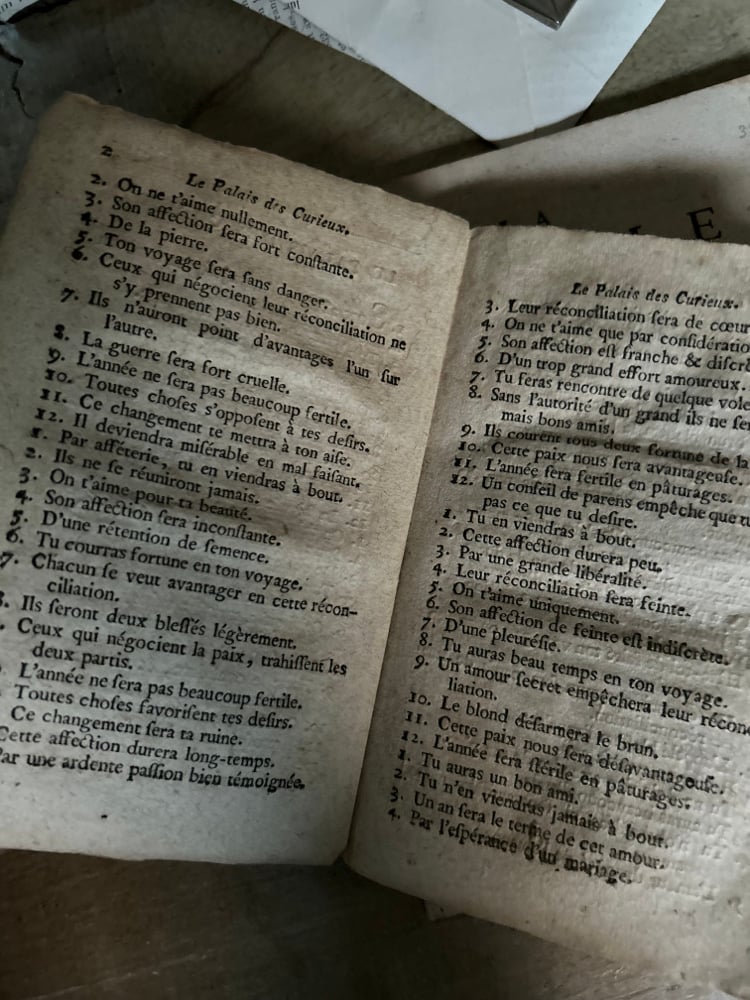 2
Le Palais des Curieux.
2. On ne t'aime nullement.
3. Son affection ſera fort conſtante.
4. De la pierre.
5. Ton voyage ſera ſans danger.
6. Ceux qui négocient leur réconciliation ne
s'y prennent pas bien.
7. Ils n'auront point d'avantages l'un ſur
l'autre.
8. La guerre ſera fort cruelle.
9. L'année ne ſera pas beaucoup fertile.
10. Toutes choſes s'oppoſent à tes deſirs.
11. Ce changement te mettra à ton aiſe.
12. Il deviendra miſérable en mal faiſant.
1. Par afféterie, tu en viendras à bout.
2. Ils ne ſe réuniront jamais.
3. On t'aime pour ta beauté.
4. Son affection ſera inconſtante.
5. D'une rétention de ſemence.
6. Tu courras fortune en ton voyage.
7. Chacun ſe veut avantager en cette récon-
ciliation.
8. Ils ſeront deux bleſſés légèrement.
Ceux qui négocient la paix, trahiſſent les
deux partis.
L'année ne ſera pas beaucoup fertile.
Toutes choſes favoriſent tes deſirs.
Ce changement ſera ta ruine.
Cette affection durera long-temps.
Par une ardente paſſion bien témoignée.
LE
Le Palais des Curieux.
3. Leur réconciliation ſera de cœur
4. On ne t'aime que par conſidératio
5. Son affection eſt franche & diſcrè
6. D'un trop grand effort amoureux.
7. Tu feras rencontre de quelque vole
8. Sans l'autorité d'un grand ils ne ſe
mais bons amis.
9. Ils courent tous deux fortune de la
10. Cette paix nous ſera avantageuſe.
11. L'année ſera fertile en pâturages.
12. Un conſeil de parens empêche que tu
pas ce que tu deſire.
1. Tu en viendras à bout.
2. Cette affection durera peu.
3. Par une grande libéralité.
4. Leur réconciliation ſera feinte.
5. On t'aime uniquement.
6. Son affection de feinte eſt indiſcrète.
7. D'une pleuréſie.
8. Tu auras beau temps en ton voyage.
9. Un amour ſecret empêchera leur récon
liation.
10. Le blond déſarmera le brun.
11. Cette paix nous ſera déſavantageuſe.
12. L'année ſera ſtérile en pâturages.
1. Tu auras un bon ami.
2. Tu n'en viendras jamais à bout.
3. Un an ſera le terme de cet amour.
4. Par l'eſpérance d'un mariage.